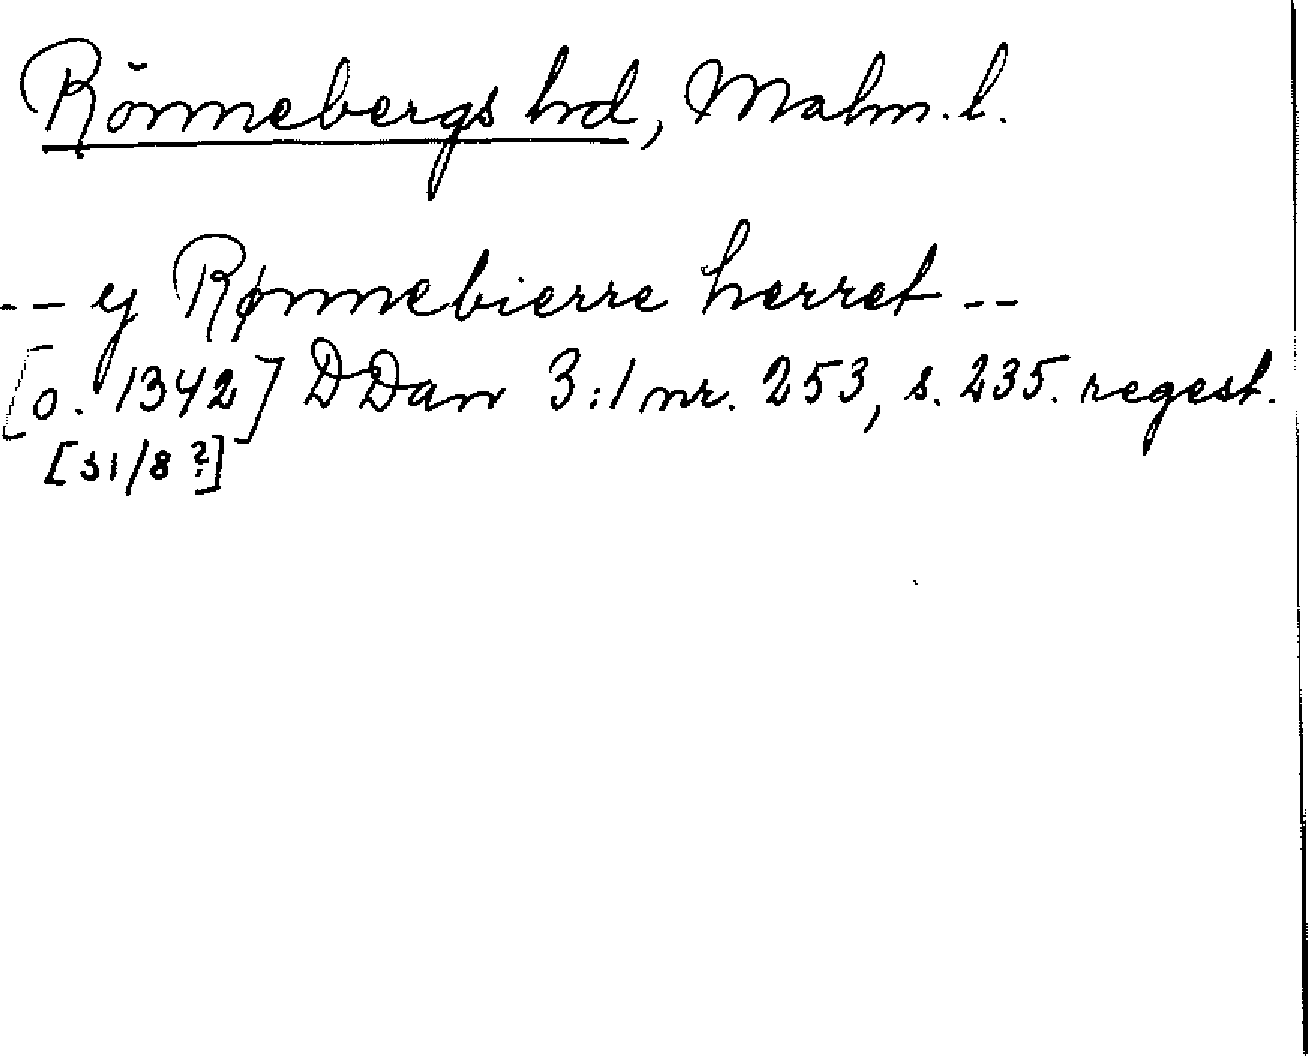 Rönnebergs hd, Malm. l.
-- y Rønnebierre herret --
[o. 1342] DDan 3:1 nr. 253, s. 235. regest.
[31/8 ?]